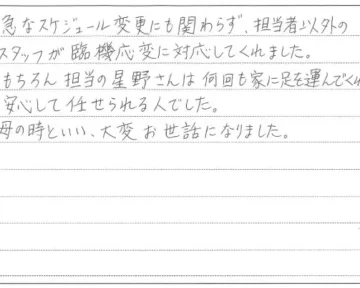 急なスケジュール変更にも関わらず、担当者以外の
スタッフが臨機応変に対応してくれました。
もちろん担当の星野さんは何回も家に足を運んでくれ
安心して任せられる人でした。
母の時といい、大変お世話になりました。